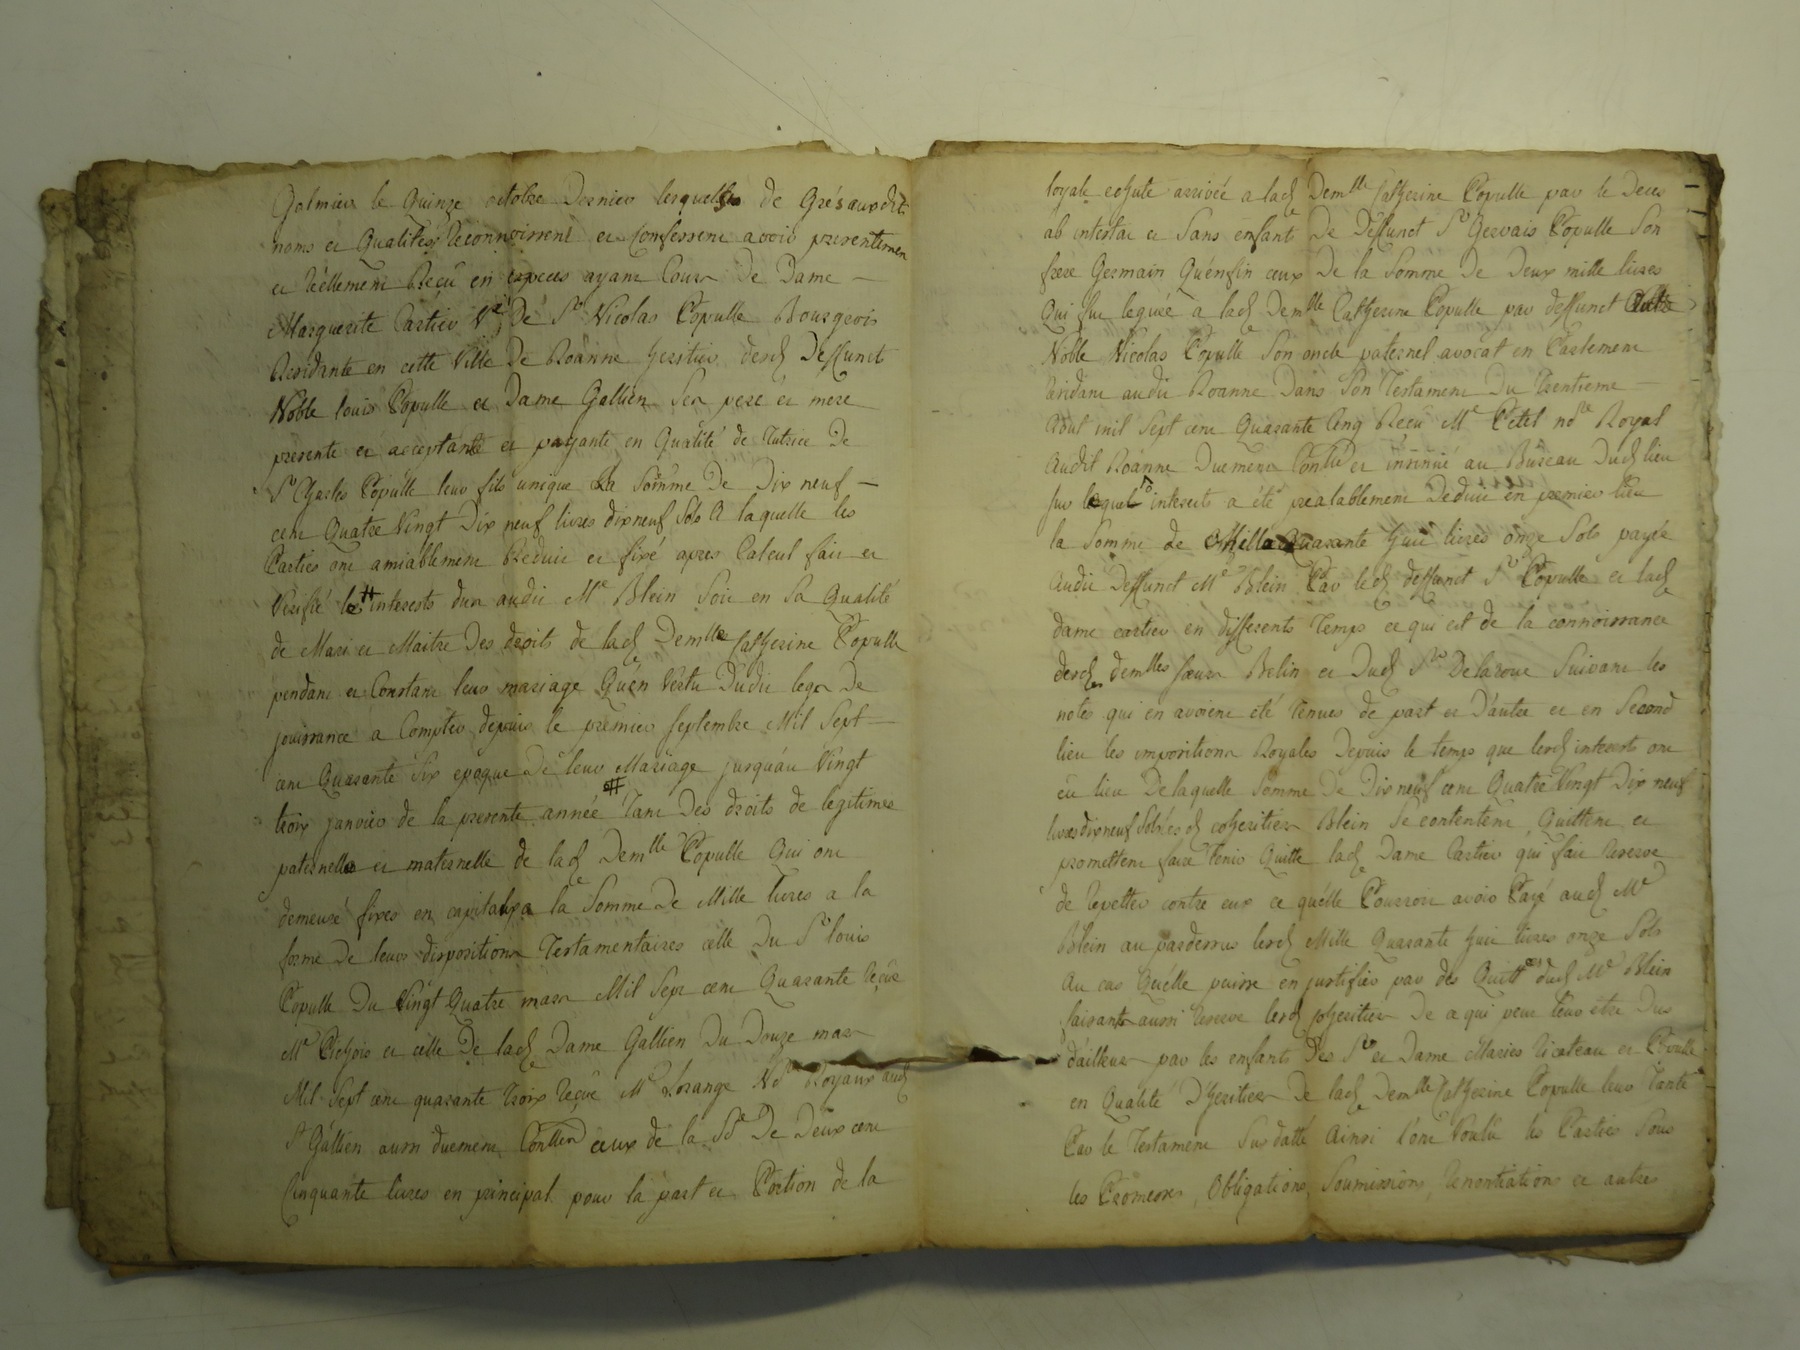 Galmier le Quinze octobre Dernier lesquelles de Grés auxdits
noms et Qualités Reconnoissent et confessent avoir presentemen
et Réellement Reçû en especes ayant Cour De Dame
Marguerite Cartier Vé De Sr Nicolas Populle Bourgeois
Residante en cette Ville De Roanne heritier desd Deffunct
Noble louis Populle et Dame Gallien Ses pere et mere
presente et acceptante et payante en Qualité de Tutrice De
Sr Charles Populle leur fils unique La Somme De Dix neuf
cent Quatre Vingt Dix neuf livres dixneuf Sols A laquelle les
Parties ont amiablement Reduit et fixé apres Calcul fait et
Verifié les interests dus audit Me Blein Soit en Sa Qualité
de Mari et Maitre Des droits de lad Demlle Catherine Populle
pendant et Constant leur mariage Quen Vertu Dudit legs De
jouissance a Compter depuis le premier Septembre Mil Sept
cent Quarante Six epoque De leur Mariage jusqu'au Vingt
trois janvier de la presente année Tant Des droits de legitimes
paternelle et maternelle de lad Demlle Populle Qui ont
demeuré fixés en capitaux a la Somme De Mille livres a la
forme De leurs dispositions Testamentaires celle Du Sr louis
Populle Du Vingt Quatre mars Mil Sept cent Quarante Reçüe
Me Pichois et celle De lad Dame Gallien Du Douze mars
Mil Sept cent quarante trois Reçüe Me Lorange Nres Royaux aud
St Gallien aussi duement Conllée ceux de la Sde De Deux cent
Cinquante livres en principal pour la part et Portion de la
loyale echute arrivée a lad Demlle Catherine Populle par le Deces
ab intestat et Sans enfant De Deffunct Sr Gervais Populle Son
frere Germain Qu'enfin ceux De la Somme De Deux mille livres
Qui fut leguée a lad Demlle Catherine Populle par deffunct
Noble Nicolas Populle Son oncle paternel avocat en Parlement
Residant audit Roanne Dans Son Testament Du Trentieme
Aout mil Sept cent Quarante Cinq Reçu Me Petel nore Royal
Audit Roanne Duement Conllé et insinué au Bureau Dud lieu
sur lesquels interests a été prealablement Deduit en premier lieu
la Somme de Mille Quarante huit livres onze Sols payée
Audit Deffunct Me Blein Par led deffunct Sr Populle et lad
dame cartier en differents Temps ce qui est de la connoissance
desd demlles sœurs Belin et Dud Sr Delaroue Suivant les
notes qui en avoient eté Tenues de part et D'autre et en Second
lieu les impositions Royales Depuis le temps que lesd interests ont
eu lieu De laquelle Somme De Dix neuf cent Quatre Vingt Dix neuf
livres dixneuf Sols lesd coheritiers Blein Se contentent Quittent et
promettent faire Tenir Quitte lad Dame Cartier qui fait reserve
de repetter contre eux ce qu'elle Pourroit avoir Payé aud Me
Blein au pardessus lesd Mille Quarante huit livres onze Sols
Au cas Qu'elle puisse en justifier par des Quittces dud Me Blein
faisants aussi reserve lesd coheritiers De ce qui peut leur etre Dus
d'ailleurs par les enfants Des Sr et Dame Maries Ricoteau et Populle
en Qualité D'heritiers De lad Demlle Catherine Populle leur Tante
Par le Testament Sus datté Ainsi l'ont Voulu les Parties Sous
les Promesses, Obligations, Soumissions, renontiations et autres